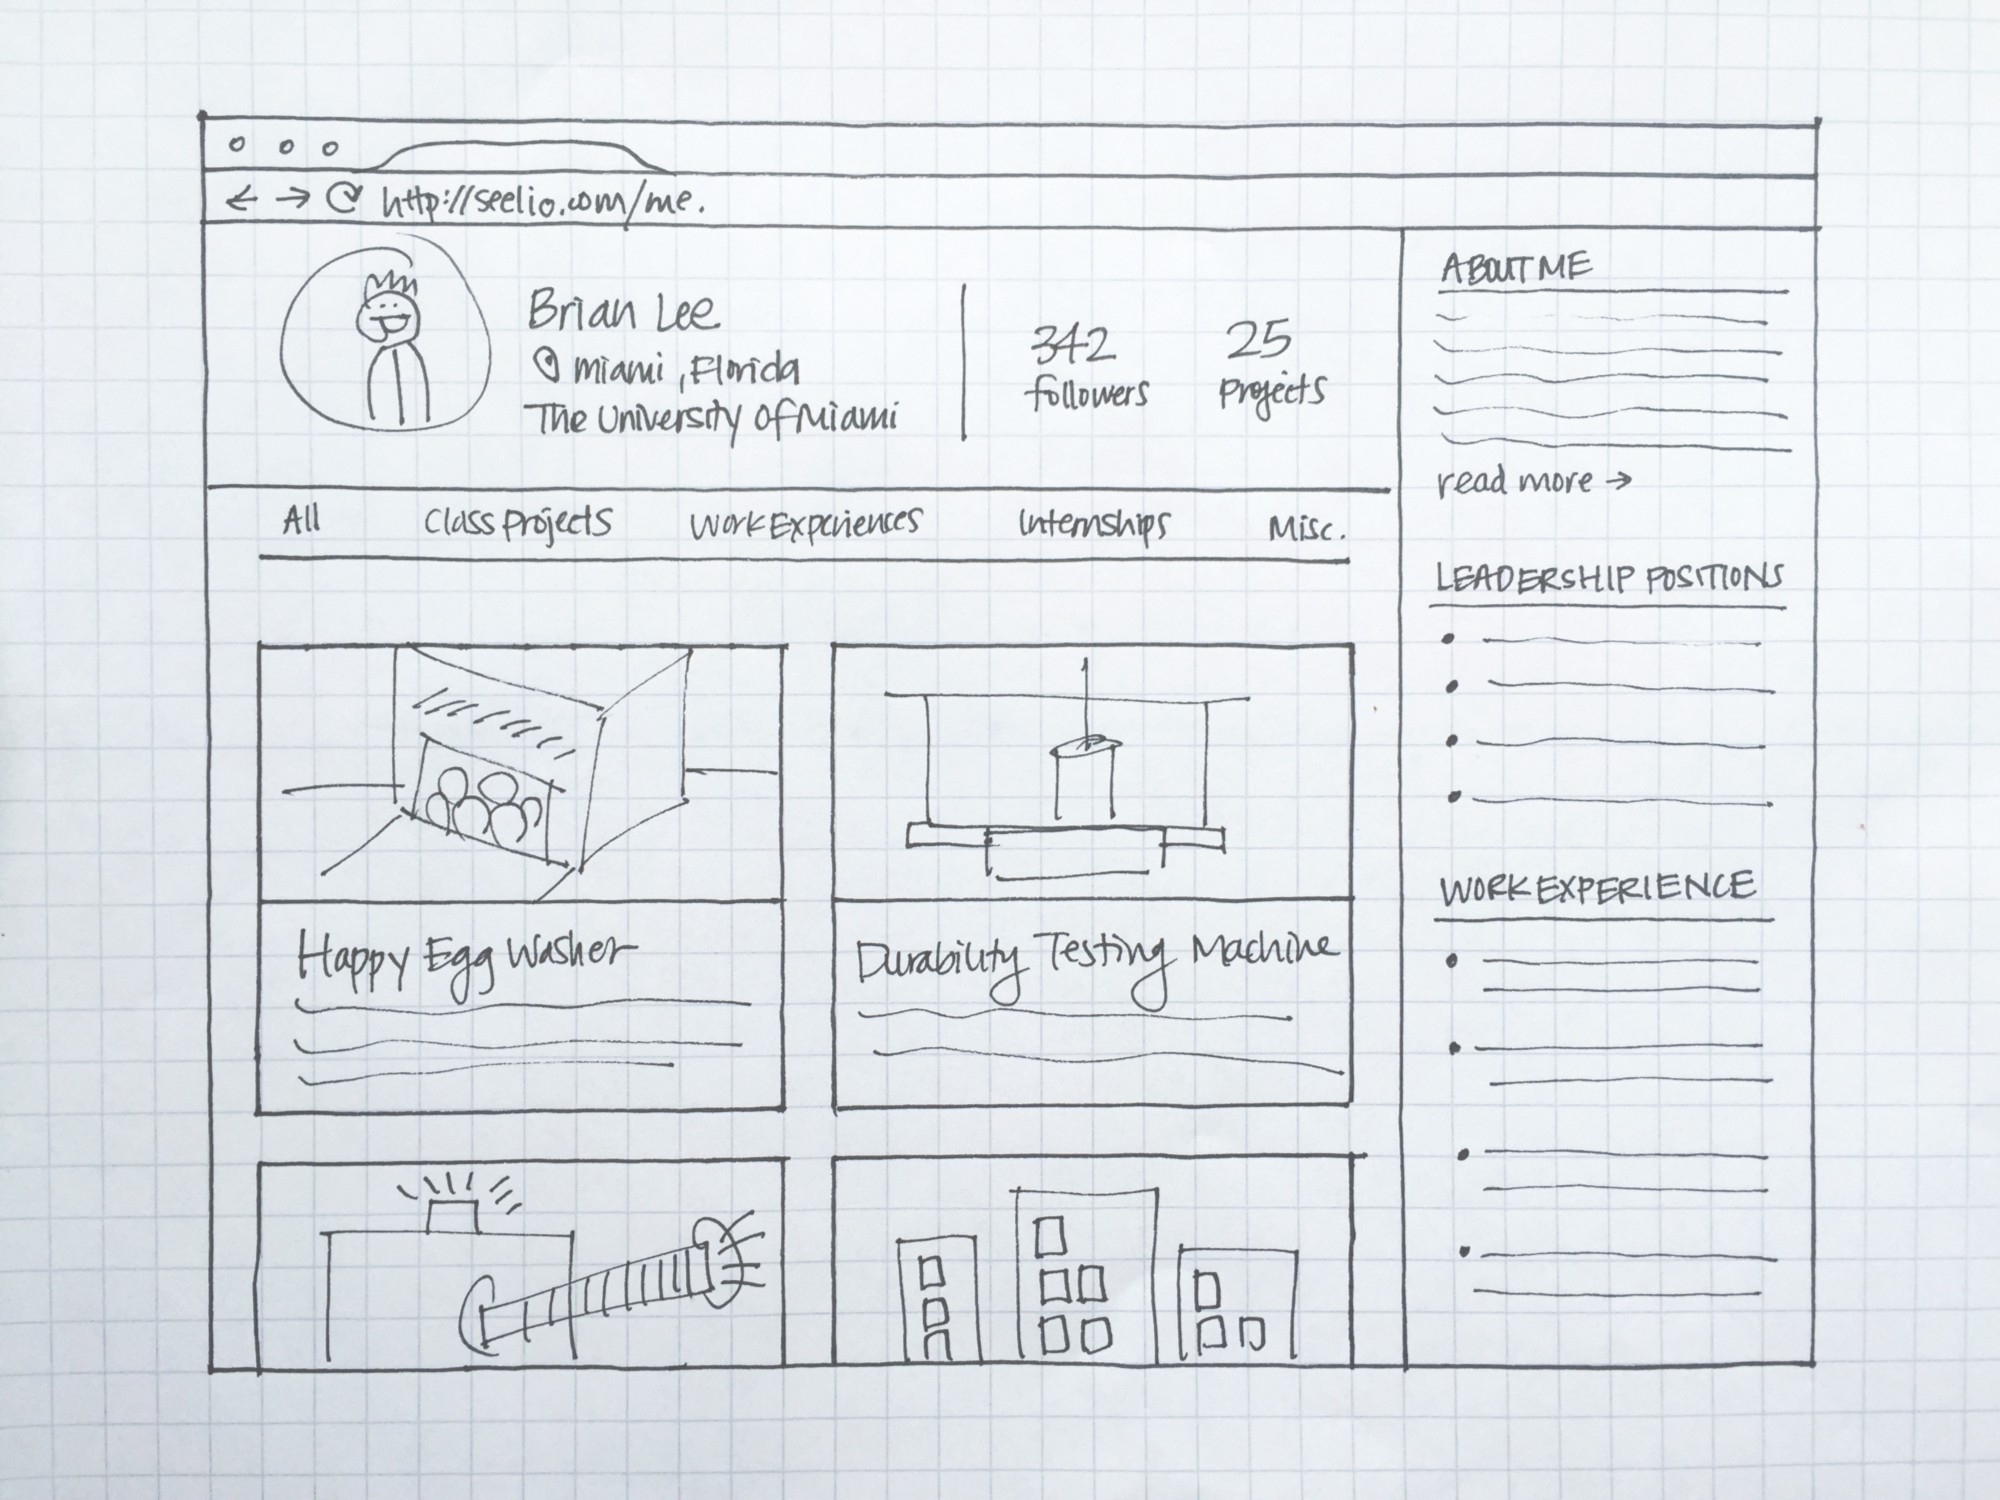 http://seelio.com/me.
Brian Lee
Miami, Florida
The University of Miami
342
followers
25
projects
All
Class Projects
Work Experiences
Internships
Misc.
Happy Egg Washer
Durability Testing Machine
ABOUT ME
read more →
LEADERSHIP POSITIONS
WORK EXPERIENCE